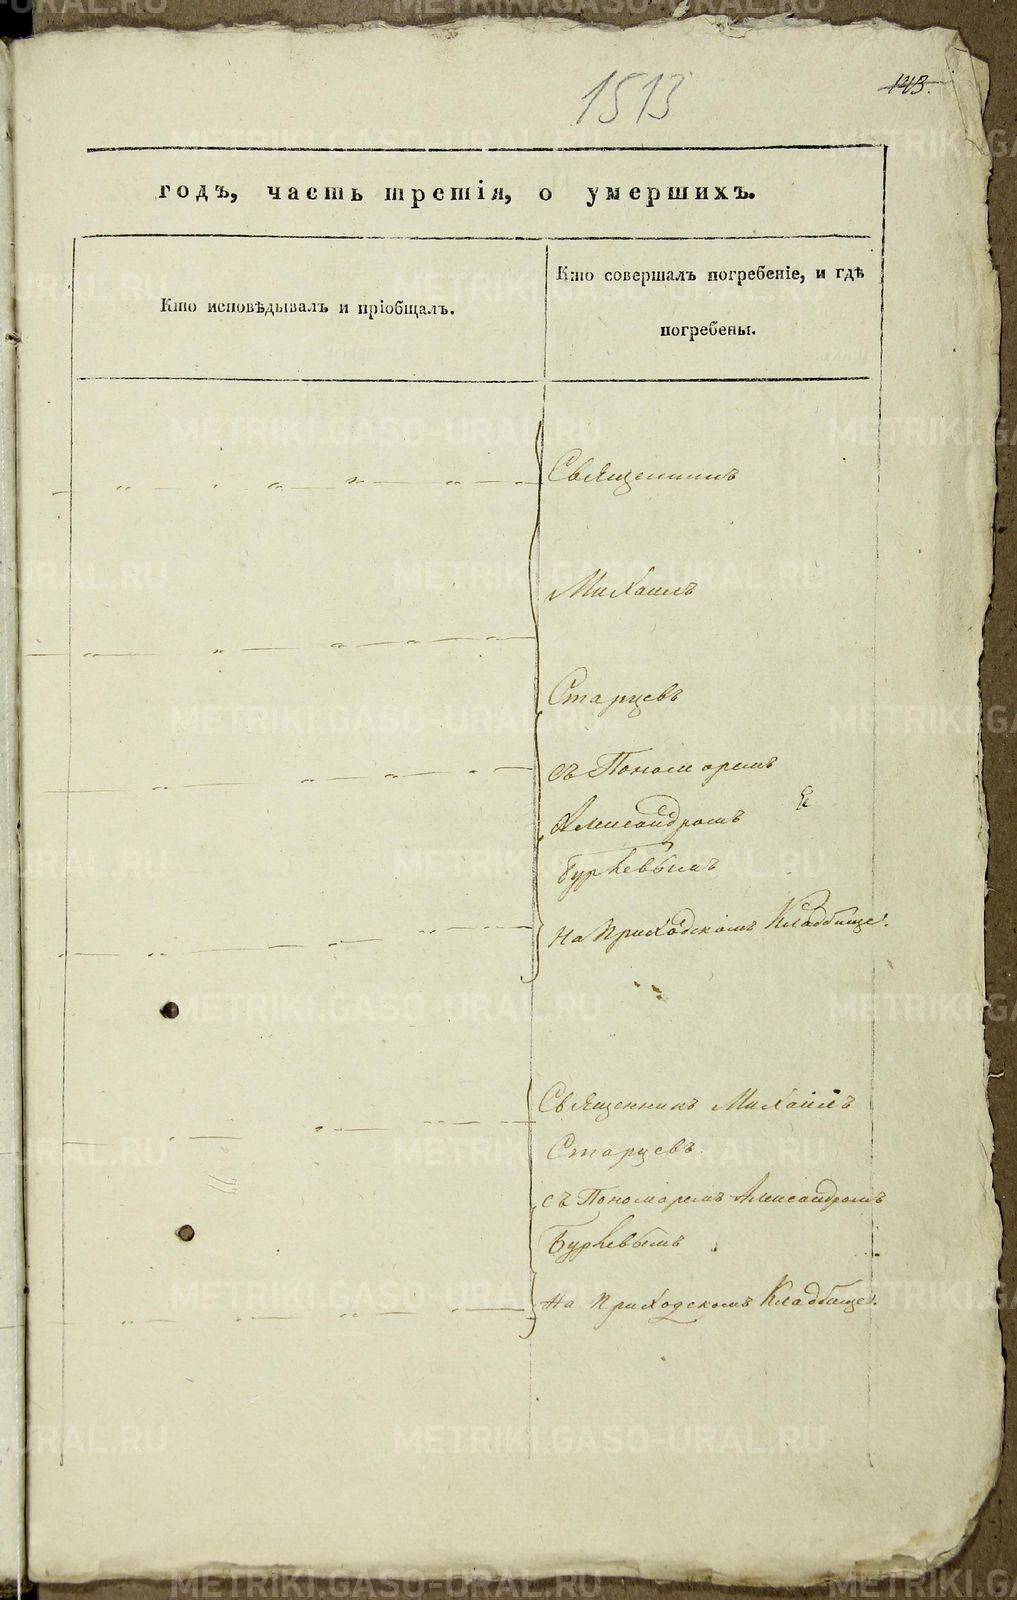 1513
143.
годъ, часть третія, о умершихъ.
Кто исповѣдывалъ и пріобщалъ.
Кто совершалъ погребеніе, и гдѣ
погребены.
Священникъ
Михаилъ
Старцевъ
съ Пономаремъ
Александромъ
Буркевымъ
На Приходскомъ Кладбище.
Священникъ Михаилъ
Старцевъ
съ Пономаремъ Александромъ
Буркевымъ
На Приходскомъ Кладбище.
METRIKI.GASO-URAL.RU